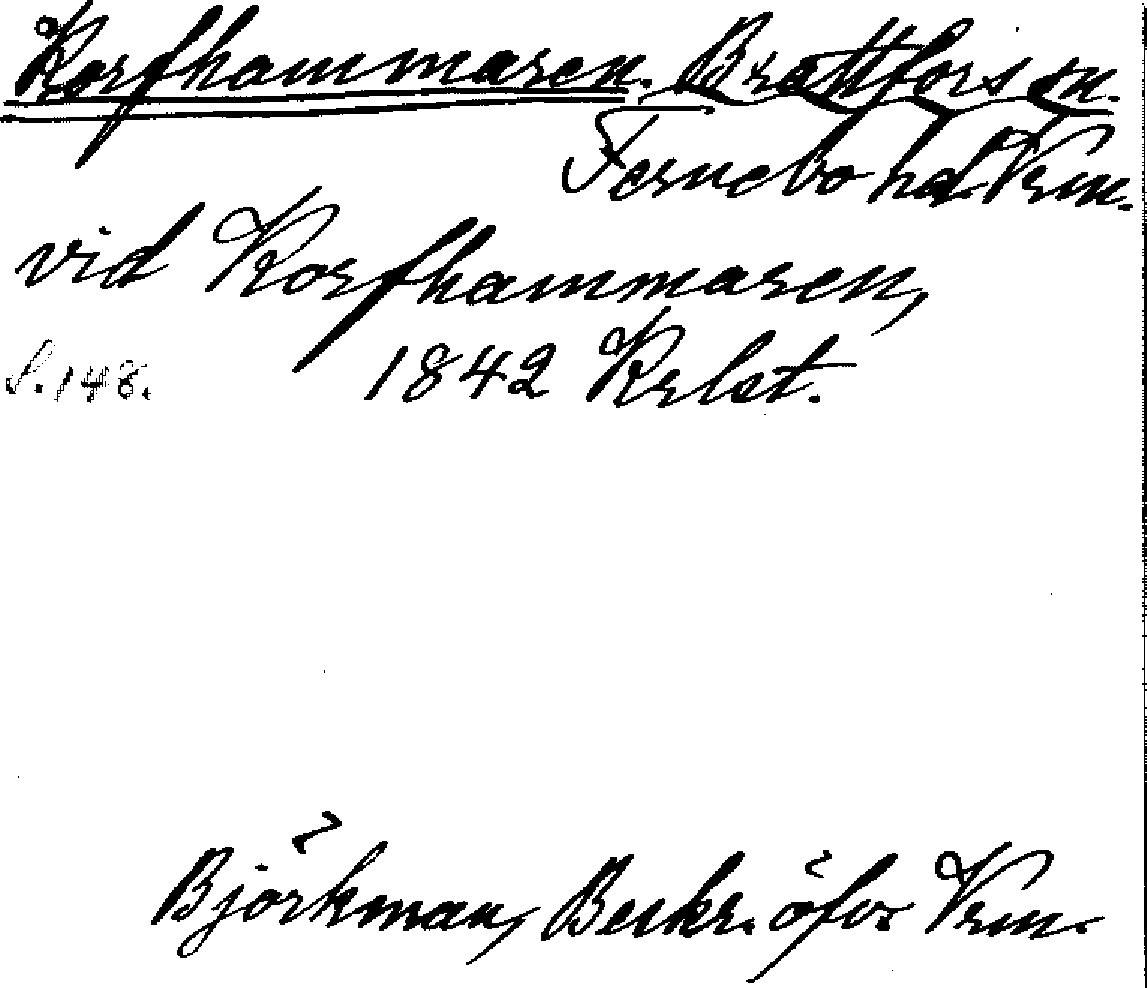 Korfhammaren. Brattfors sn.
Fernebo hd Vrm.
vid Korfhammaren,
S. 148. 1842 Krlst.
Björkman, Beskr. öfver Vrm.